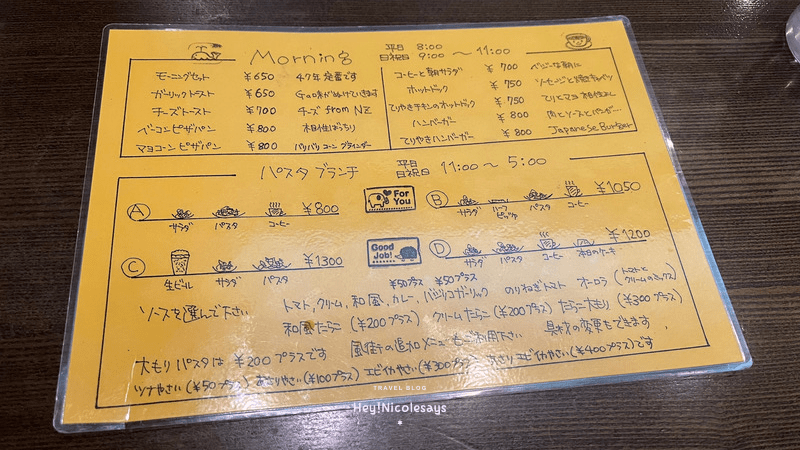 Morning 平日 8:00 日祝日 9:00 〜 11:00
モーニングセット ¥650 47年定番です
ガーリックトースト ¥650
チーズトースト ¥700 チーズ from NZ
ベーコンピザパン ¥800 相性ばっちり
マヨコーンピザパン ¥800 パリパリコーン
コーヒーと朝サラダ ¥700 ベジーな朝に
ホットドック ¥750 ソーセージと焼キャベツ
てりやきチキンのホットドック ¥750 てりとマヨ 相性よし
ハンバーガー ¥800 肉とソースとバンズ
てりやきハンバーガー ¥800 Japanese Burger
パスタブランチ 平日 日祝日 11:00〜5:00
A サラダ パスタ コーヒー ¥800
For You
B サラダ ハーフピッツァ パスタ コーヒー ¥1050
C 生ビール サラダ パスタ ¥1300
Good Job!
D サラダ パスタ コーヒー 本日のケーキ ¥1200
¥50プラス ¥50プラス
ソースを選んで下さい トマト,クリーム,和風,カレー,バジリコガーリック のりねぎトマト オーロラ (トマトとクリームのミックス)
和風たらこ (¥200プラス) クリームたらこ (¥200プラス) たらこ大もり (¥300プラス)
大もりパスタは ¥200プラスです 風街の追加メニューもご利用下さい 具材の変更もできます
ツナやさい (¥50プラス) あさりやさい (¥100プラス) エビイカやさい (¥300プラス) あさりエビイカやさい (¥400プラス) です
TRAVEL BLOG
Hey!Nicolesays